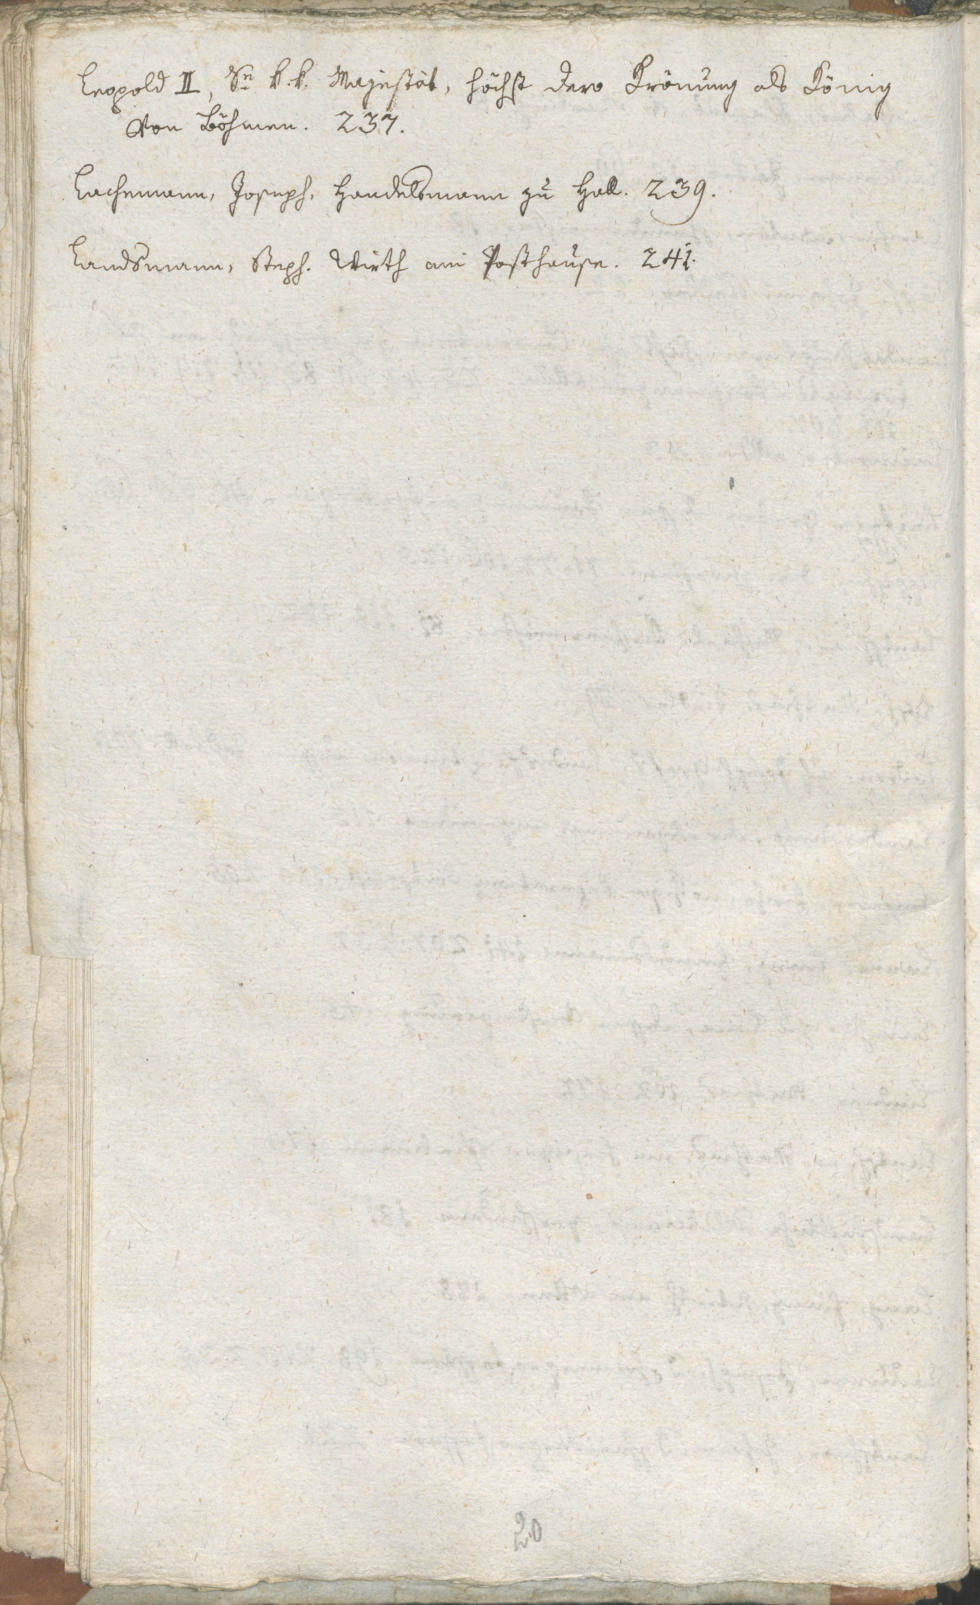 Leopold II, Sr k.k. Majestät, höchst dero Krönung als König
von Böhmen. 237.
Lachemann, Joseph, Handelsmann zu Hall. 239.
Landsmann, Steph. Wirth am Posthause. 241.
20